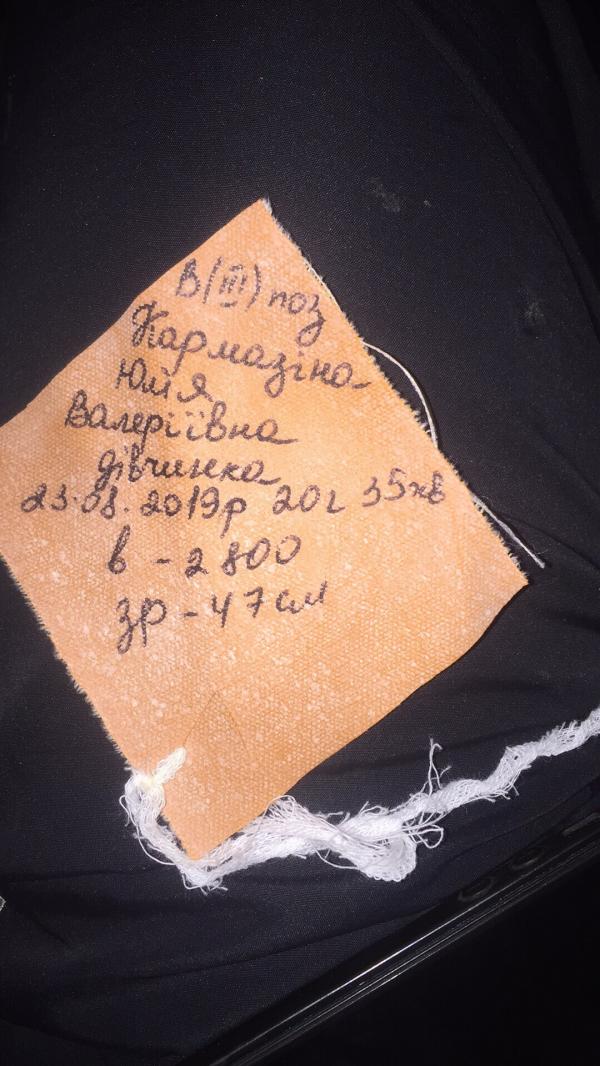 В(III) поз
Кармазіна
Юлія
Валеріївна
дівчинка
23.08.2019р 20г 35хв
в - 2800
зр - 47см